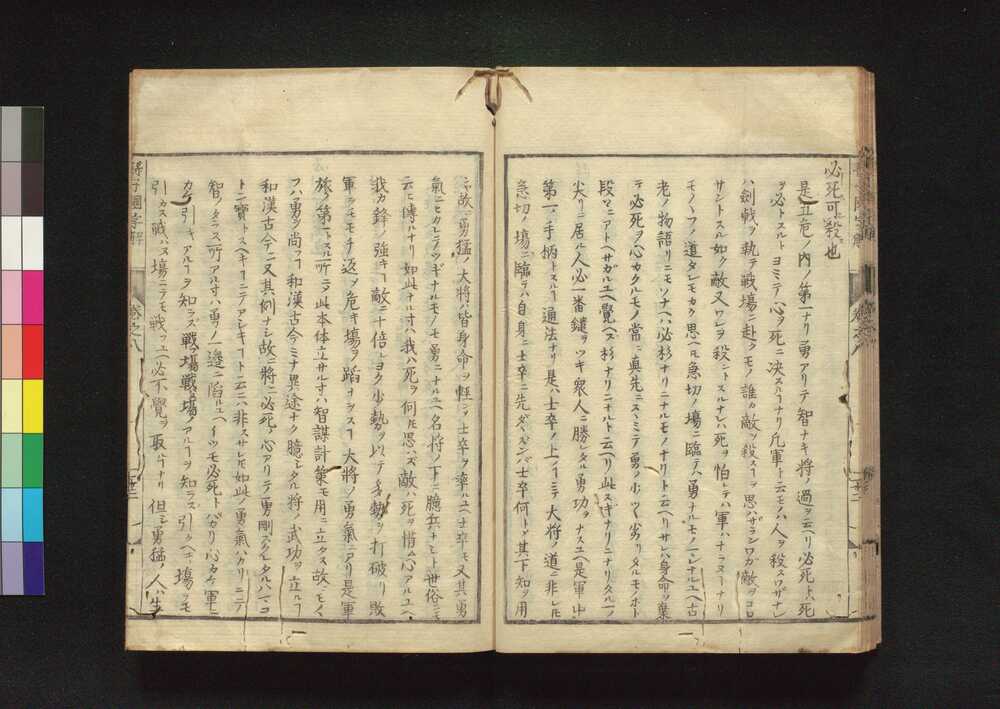 必死可殺也
是五危ノ内ノ第一ナリ勇アリテ智ナキ將ノ過ヲ云リ必死トハ死
ヲ必トスルトヨミテ心ヲ死ニ決スルナリ凡軍ト云モノハ人ヲ殺スワザナレ
ハ劍戟ヲ執テ戰場ニ赴クモノ誰カ敵ヲ殺スヿヲ思ハザランワガ敵ヲコロ
サントスル如ク敵又ワレヲ殺ントスルナレハ死ヲ怕レテハ軍ハナラヌヿナリ
モノヽフノ道タレモカク思ヘ𪜈急切ノ塲ニ臨テハ勇ナルモノ一レナルユヘ古
老ノ物語リニモソナヘハ必杉ナリニナルモノナリト云ヘリサレハ身命ヲ棄
テ必死ヲ心カクルモノ常ニ真先ニスヽミテ勇ノ少シク劣リタルモノホト
段々ニアトヘサガルユヘ覺ヘズ杉ナリニナルト云ヘリ此スギナリニナリタル一ノ
尖リニ居ル人必一番鑓ヲツキ衆人ニ勝レタル勇功ヲナスユヘ是軍中
第一ノ手柄トスルヿ通法ナリ是ハ士卒ノ上ノイミテ大將ノ道ニ非レ𪜈
急切ノ塲ニ臨ラハ自身ニ士卒ニ先ダヽズンバ士卒何トテ其下知ヲ用
ン故ニ勇猛ノ大將ハ皆身命ヲ輕シメ士卒ヲ率ルユヘ士卒モ又其勇
氣ニヒカレテツギナルモノモ勇ニナルユヘ名將ノ下ニ臆兵ナシト世俗ニモ
云ヒ傳ルナリ如此ナル寸ハ我ハ死ヲ何𪜈思ハズ敵ハ死ヲ惜ム心アルユヘ
我カ鋒ノ強キヿ敵ニ十倍シヨク少勢ヲ以テ多勢ヲ打破リ敗
軍ヲモモチ返シ危キ塲ヲ蹈ナラスヿ大將ノ勇氣ニアリ是軍
旅ノ第一トスル所ニシテ此本体立サル寸ハ智謀計策モ用ニ立タス故ニモノヽ
フハ勇ヲ尚ツヿ和漢古今ミナ異途ナク臆シタル將ノ武功ヲ立ルヿ
和漢古今ニ又其例ナシ故ニ將ニ必死ノ心アリテ勇剛ヲスグレタルハマコ
トニ寶トスヘキヿニテアシキヿト云ニハ非スサレ𪜈如此ノ勇氣ハカリニテ
智ノタラヌ所アル寸ハ勇ノ一邊ニ陷ルユヘイツモ必死トバカリ心カケ軍ニ
カケ引キアルヿヲ知ラズ戰塲戰塲ノアルヿヲ知ラズ引クヘキ塲ヲモ
引カス戰ハヌ塲ニテモ戰フユヘ必不覺ヲ取ルナリ但シ勇猛ノ人ハ生